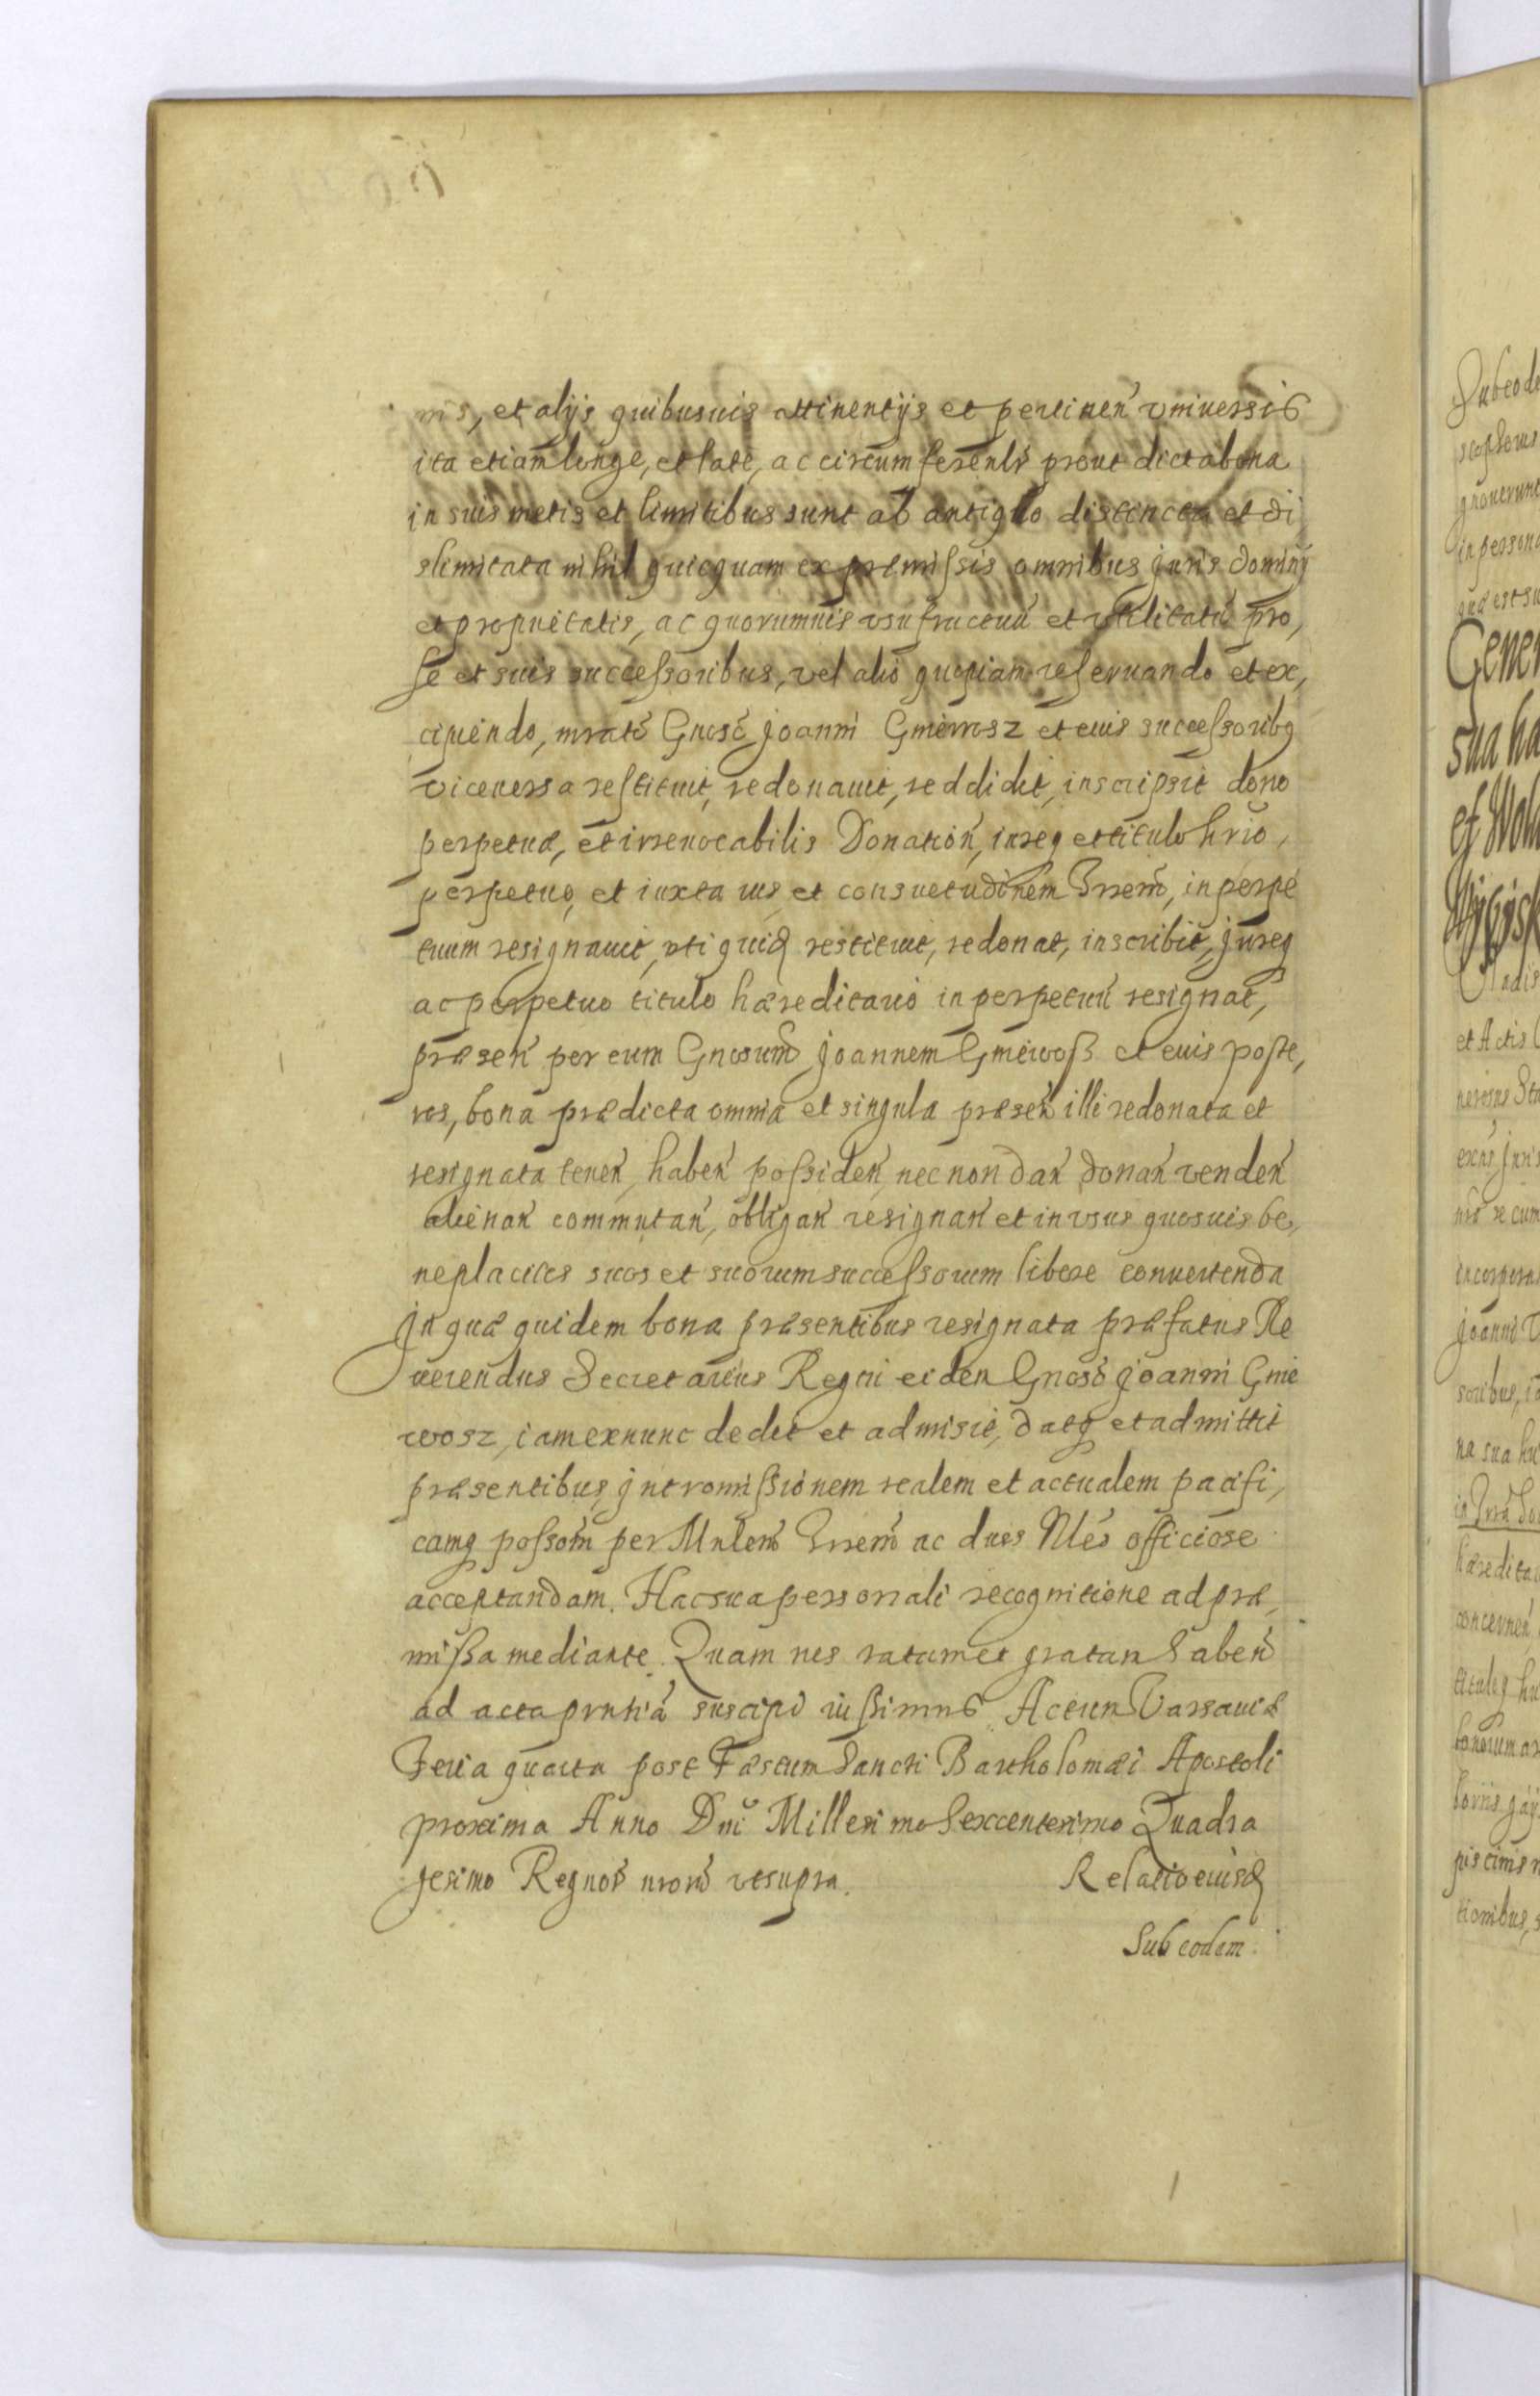 nis, et alijs quibusuis attinentijs et pertinen̄ vniuersis
ita etiam longe, et late, ac circumferentr̄ prout dicta bona
in suis metis et limitibus sunt ab antiquo distincta et di
slimitata nihil quicquam ex præmissis omnibus juris dominij
et proprietatis, ac quorumuis vsufructuū et vtilitatū pro,
se et suis successoribus, vel alio quopiam reseruando et ex,
cipiendo, mrato Gnoso Joanni Gniewosz et eius successoribq
viceuersa restituit, redonauit, reddidit, inscripsit dono
perpetuæ, et irreuocabilis Donation̄, iureq et titulo hrio,
perpetuo, et iuxta ius et consuetudinem Trrem̄, in perpe
tuum resignauit, vti quidq restituit, redonat, inscribit, jureq
ac perpetuo titulo hæreditario in perpetuū resignat,
præsen̄ per eum Gnosum Joannem Gniewosz et eius poste,
ros, bona prædicta omnia et singula præsen̄ illi redonata et
resignata tenen̄, haben̄ possiden̄, nec non dan̄ donan̄ venden̄
alienan̄ commutan̄, obligan̄ resignan̄ et in vsus quosuis be,
neplacitos suos et suorum successorum libere conuertenda
In quæ quidem bona præsentibus resignata præfatus Re
uerendus Secretarius Regni eiden Gnoso Joanni Gnie
wosz, iam ex nunc dedit et admisit, datq et admittit
præsentibus, jntromissionem realem et actualem pacifi,
camq possom̄ per Mnlem Trrem̄ ac dnes Nleo officiose
acceptandam. Hac sua personali recognitione ad præ,
missa mediante. Quam nos ratam et gratan haben̄
ad acta prntiā suscipi iussimus. Actum Varsauiæ
Feria quarta post Fæstum Sancti Bartholomæi Apostoli
proxima Anno Dni Millesimo Sexcentesimo Quadra
gesimo Regnor̄ nrorū vt supra. Relatio eiusdq
Sub eodem.
Sub eode
Gener
sua ha
et Actis
Joanni
soribus,
na sua hæ
hæredita
concernen̄
tionibus,